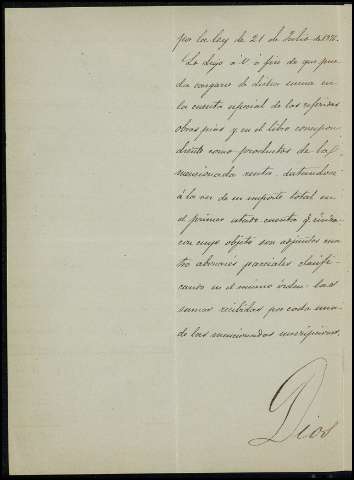 por la ley de 21 de Julio de 1876.
Lo digo á V. á fin de que pue
da cargarse de dicha suma en
la cuenta especial de las referidas
obras pias y en el libro correspon
diente como productos de la
mencionada renta, datandose
á la vez de su importe total en
el primer estado cuenta q. rinda
con cuyo objeto son adjuntos cua
tro abonarés parciales clasifi-
cando en el mismo orden las
sumas recibidas por cada una
de las mencionadas inscripciones.
Dios